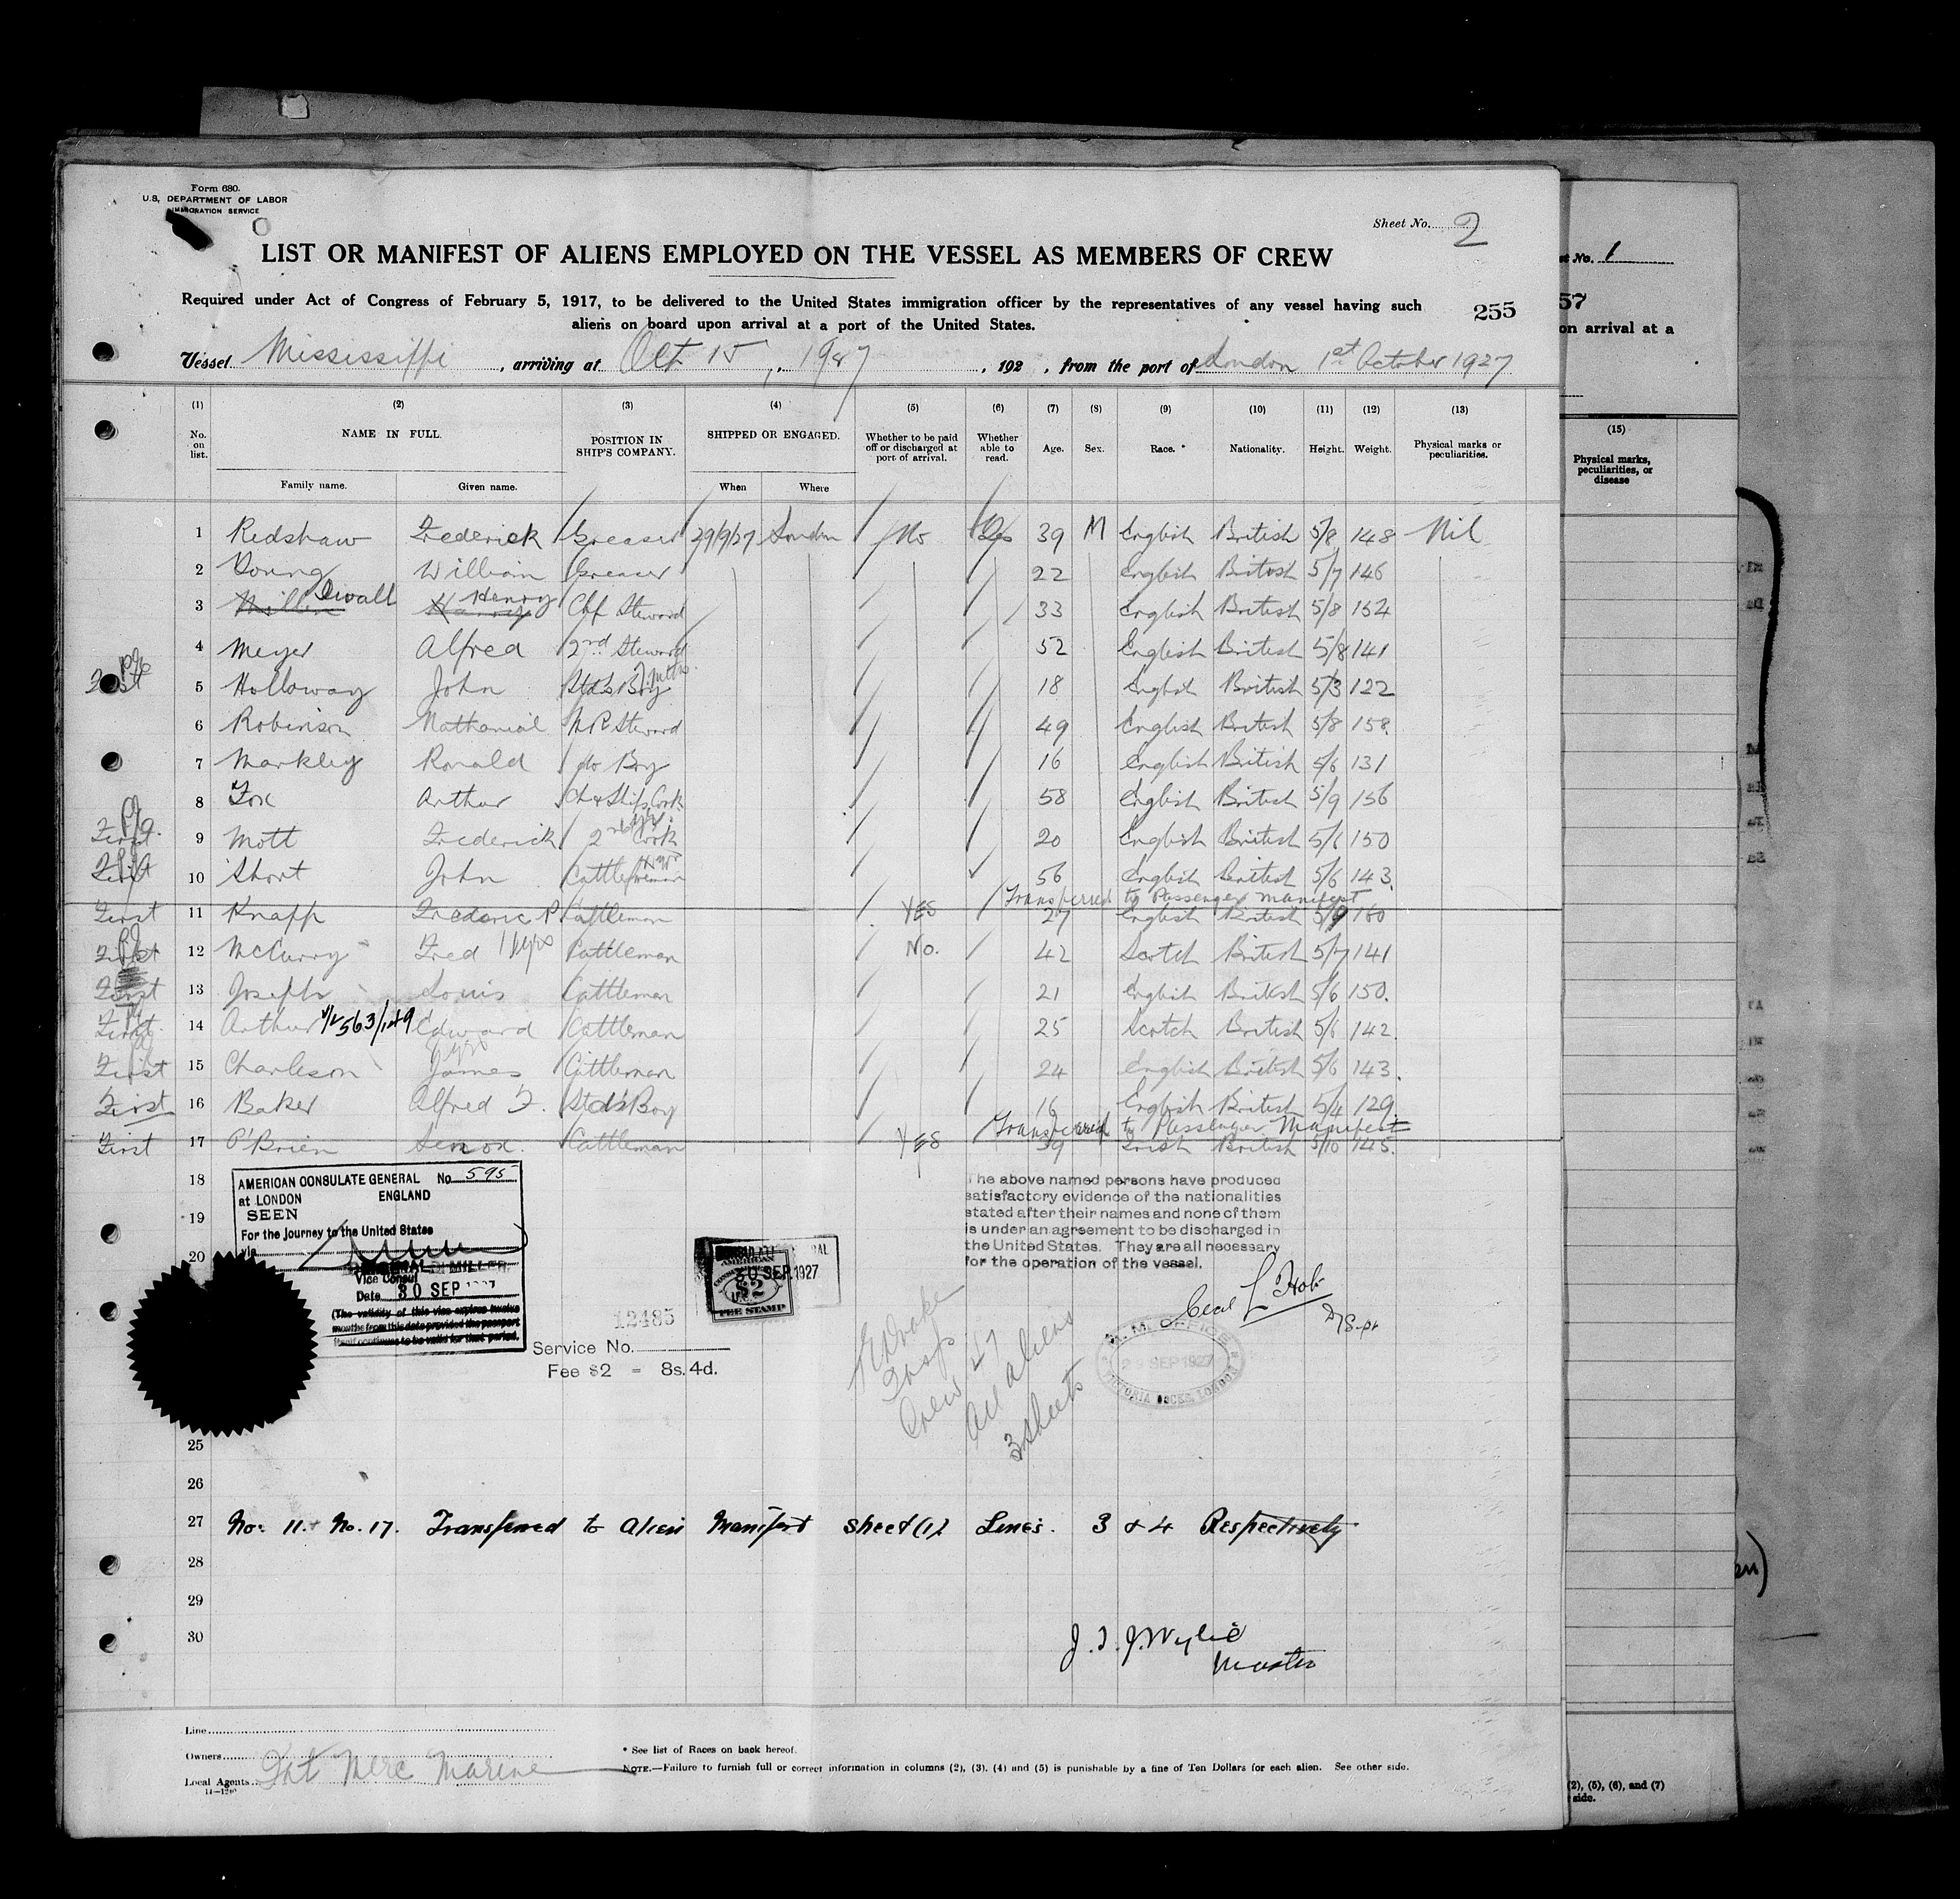 Form 680.
U.S. DEPARTMENT OF LABOR
IMMIGRATION SERVICE
Sheet No. 2
LIST OR MANIFEST OF ALIENS EMPLOYED ON THE VESSEL AS MEMBERS OF CREW
Required under Act of Congress of February 5, 1917, to be delivered to the United States immigration officer by the representatives of any vessel having such
aliens on board upon arrival at a port of the United States.
255
Vessel Mississippi, arriving at Oct 15, 1927, 192 , from the port of London 1st October 1927
(1) (2) (3) (4) (5) (6) (7) (8) (9) (10) (11) (12) (13)
No. on list. NAME IN FULL. POSITION IN SHIP'S COMPANY. SHIPPED OR ENGAGED. Whether to be paid off or discharged at port of arrival. Whether able to read. Age. Sex. Race.* Nationality. Height. Weight. Physical marks or peculiarities.
Family name. Given name. When Where
1 Redshaw Frederick Greaser 29/9/27 London No Yes 39 M English British 5/8 148 Nil
2 Young William Greaser 22 English British 5/7 146
3 Miller Dewalt Harry Henry Chf Steward 33 English British 5/8 152
4 Meyer Alfred 2nd Steward 52 English British 5/8 141
First 5 Holloway John Stds Boy 18 English British 5/3 122
6 Robinson Nathanial Steward 49 English British 5/8 158
7 Markley Ronald do Boy 16 English British 5/6 131
8 Fox Arthur Ch & Ships Cook 58 English British 5/9 156
First 9 Mott Frederick 2nd Cook 20 English British 5/6 150
First 10 Short John Cattle foreman 56 English British 5/6 143
Transferred to Passenger Manifest
First 11 Knapp Frederic P. Cattleman YES 27 English British 5/9 160
First 12 McCurry Fred Cattleman No. 42 Scotch British 5/7 141
First 13 Joseph Louis Cattleman 21 English British 5/6 150.
First 14 Arthur Edward Cattleman 25 Scotch British 5/6 142.
First 15 Charleson James Cattleman 24 English British 5/6 143.
First 16 Baker Alfred F. Std's Boy 16 English British 5/4 129.
Transferred to Passenger Manifest
First 17 O'Brien Lenox. Cattleman YES 39 Irish British 5/10 145.
18
19
20
AMERICAN CONSULATE GENERAL No. 595
at LONDON ENGLAND
SEEN
For the Journey to the United States
via
MILLER
Vice Consul
Date 30 SEP 1927
(The validity of this visa expires twelve
months from this date provided the passport
itself continues to be valid for that period.
AMERICAN
30 SEP 1927
$2
FEE STAMP
12485
Service No.
Fee $2 = 8s. 4d.
The above named persons have produced
satisfactory evidence of the nationalities
stated after their names and none of them
is under an agreement to be discharged in
the United States. They are all necessary
for the operation of the vessel.
M. M. OFFICE
SEP 1927
VICTORIA DOCKS, LONDON
Crew 47
All aliens
3 sheets
25
26
27 No. 11. & No. 17. Transferred to Alien Manifest sheet (1) Lines. 3 & 4 Respectively
28
29
30
J. T. J. Wylie
Master
Line
Owners
Local Agents Int Merc Marine
* See list of Races on back hereof.
NOTE.—Failure to furnish full or correct information in columns (2), (3), (4) and (5) is punishable by a fine of Ten Dollars for each alien. See other side.
No. 1
57
on arrival at a
(15)
Physical marks, peculiarities, or disease
(2), (5), (6), and (7)
side.